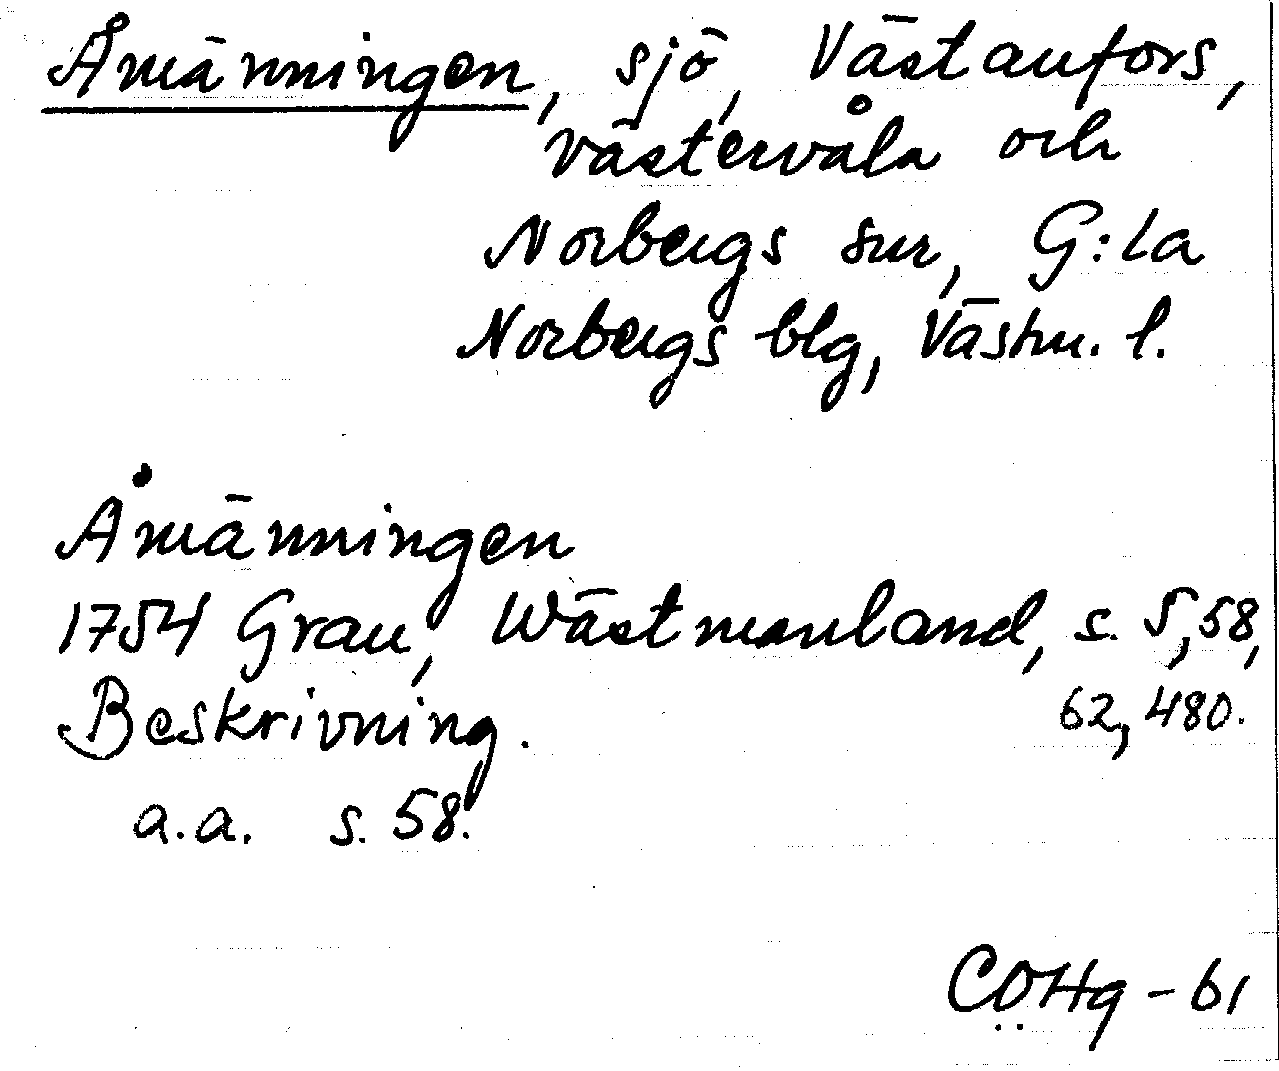 Åmänningen, sjö, Västanfors,
Västervåla och
Norbergs snr, G:la
Norbergs blg, Västm. l.
Åmänningen
1754 Grau, Wästmanland, s. 5, 58,
62, 480.
Beskrivning.
a.a. s. 58.
COHg - 61